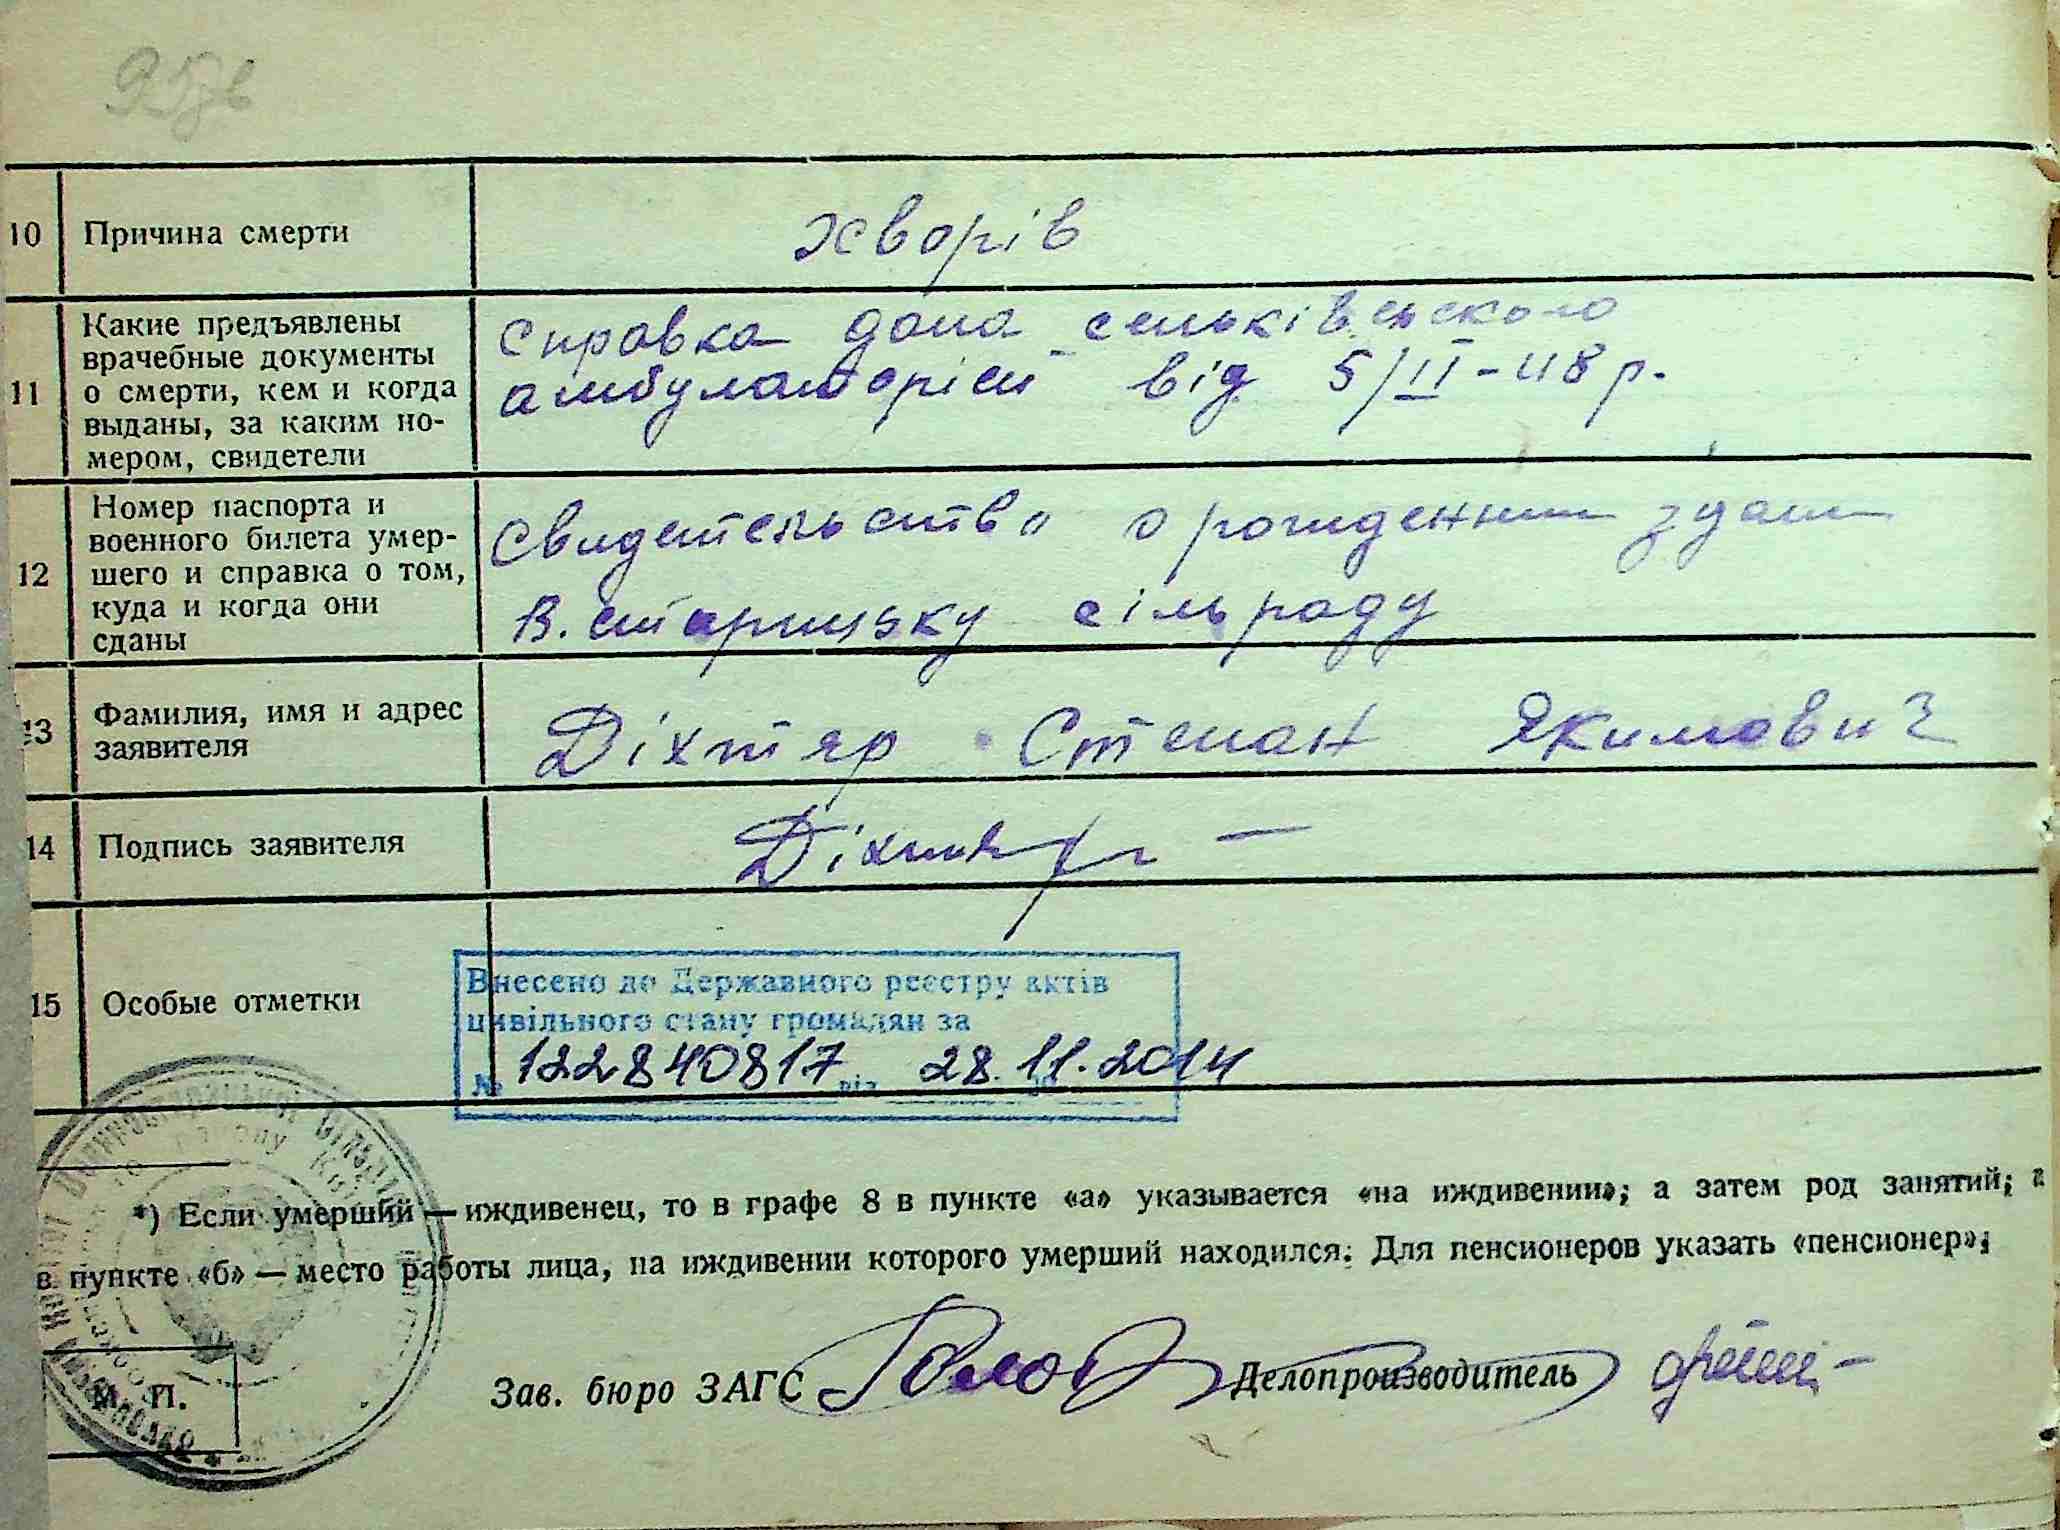 10 Причина смерти хворів
11 Какие предъявлены
врачебные документы
о смерти, кем и когда
выданы, за каким но-
мером, свидетели
справка дана сеньківського
амбулаторією від 5/II-48 р.
12 Номер паспорта и
военного билета умер-
шего и справка о том,
куда и когда они
сданы
Свидетельство о рождении здали
В. старицьку сільраду
13 Фамилия, имя и адрес
заявителя
Діхтяр Степан Якимович
14 Подпись заявителя Діхтяр
15 Особые отметки
Внесено до Державного реєстру актів
цивільного стану громадян за
№ 122840817 від 28.11.2014
*) Если умерший — иждивенец, то в графе 8 в пункте «а» указывается «на иждивении»; а затем род занятий; а
в пункте «б» — место работы лица, на иждивении которого умерший находился. Для пенсионеров указать «пенсионер»;
М. П.
Зав. бюро ЗАГС Делопроизводитель